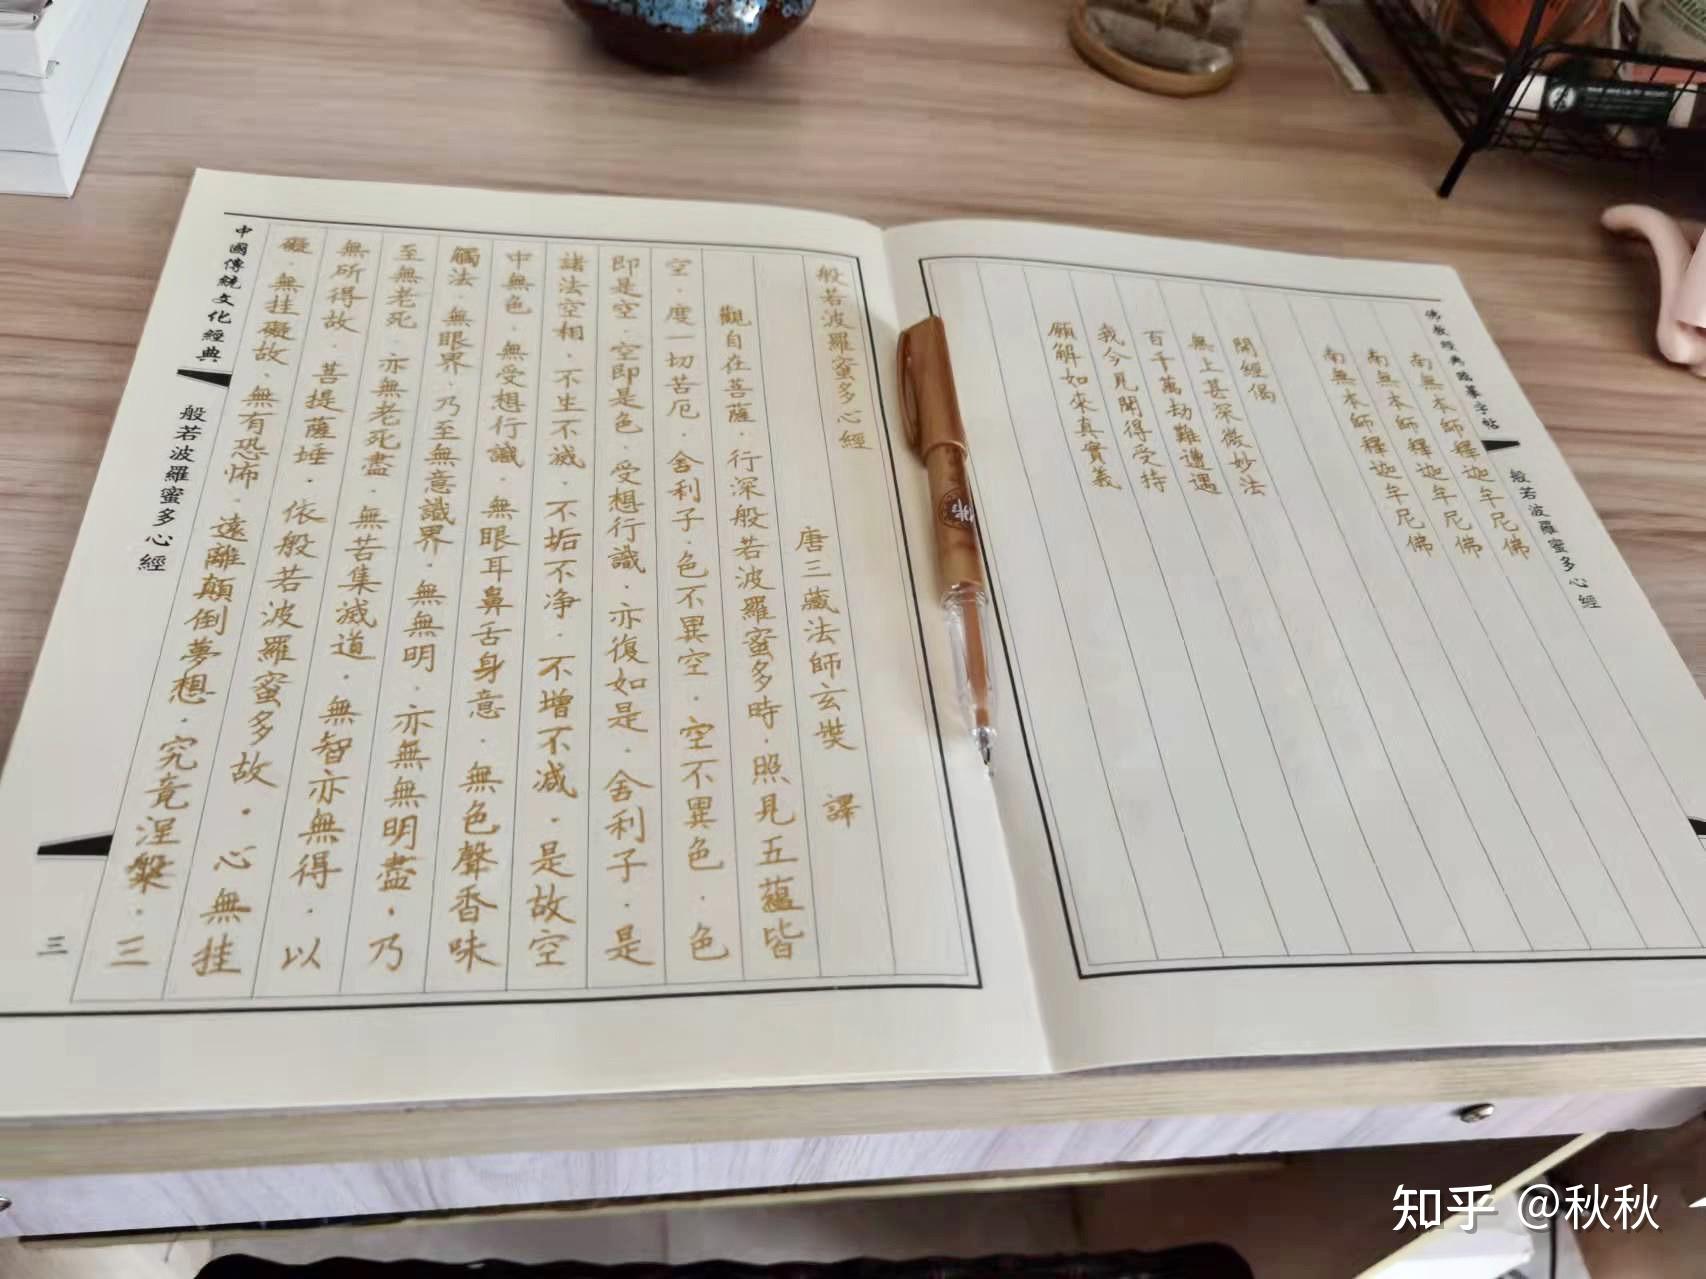 佛教經典臨摹字帖
般若波羅蜜多心經
南無本師釋迦牟尼佛
南無本師釋迦牟尼佛
南無本師釋迦牟尼佛
開經偈
無上甚深微妙法
百千萬劫難遭遇
我今見聞得受持
願解如來真實義
般若波羅蜜多心經
唐三藏法師玄奘 譯
觀自在菩薩·行深般若波羅蜜多時·照見五蘊皆
空·度一切苦厄·舍利子·色不異空·空不異色·色
即是空·空即是色·受想行識·亦復如是·舍利子·是
諸法空相·不生不滅·不垢不净·不增不減·是故空
中無色·無受想行識·無眼耳鼻舌身意·無色聲香味
觸法·無眼界·乃至無意識界·無無明·亦無無明盡·乃
至無老死·亦無老死盡·無苦集滅道·無智亦無得·以
無所得故·菩提薩埵·依般若波羅蜜多故·心無挂
礙·無挂礙故·無有恐怖·遠離顛倒夢想·究竟涅槃·三
中國傳統文化經典
般若波羅蜜多心經
三
佛
知乎 @秋秋